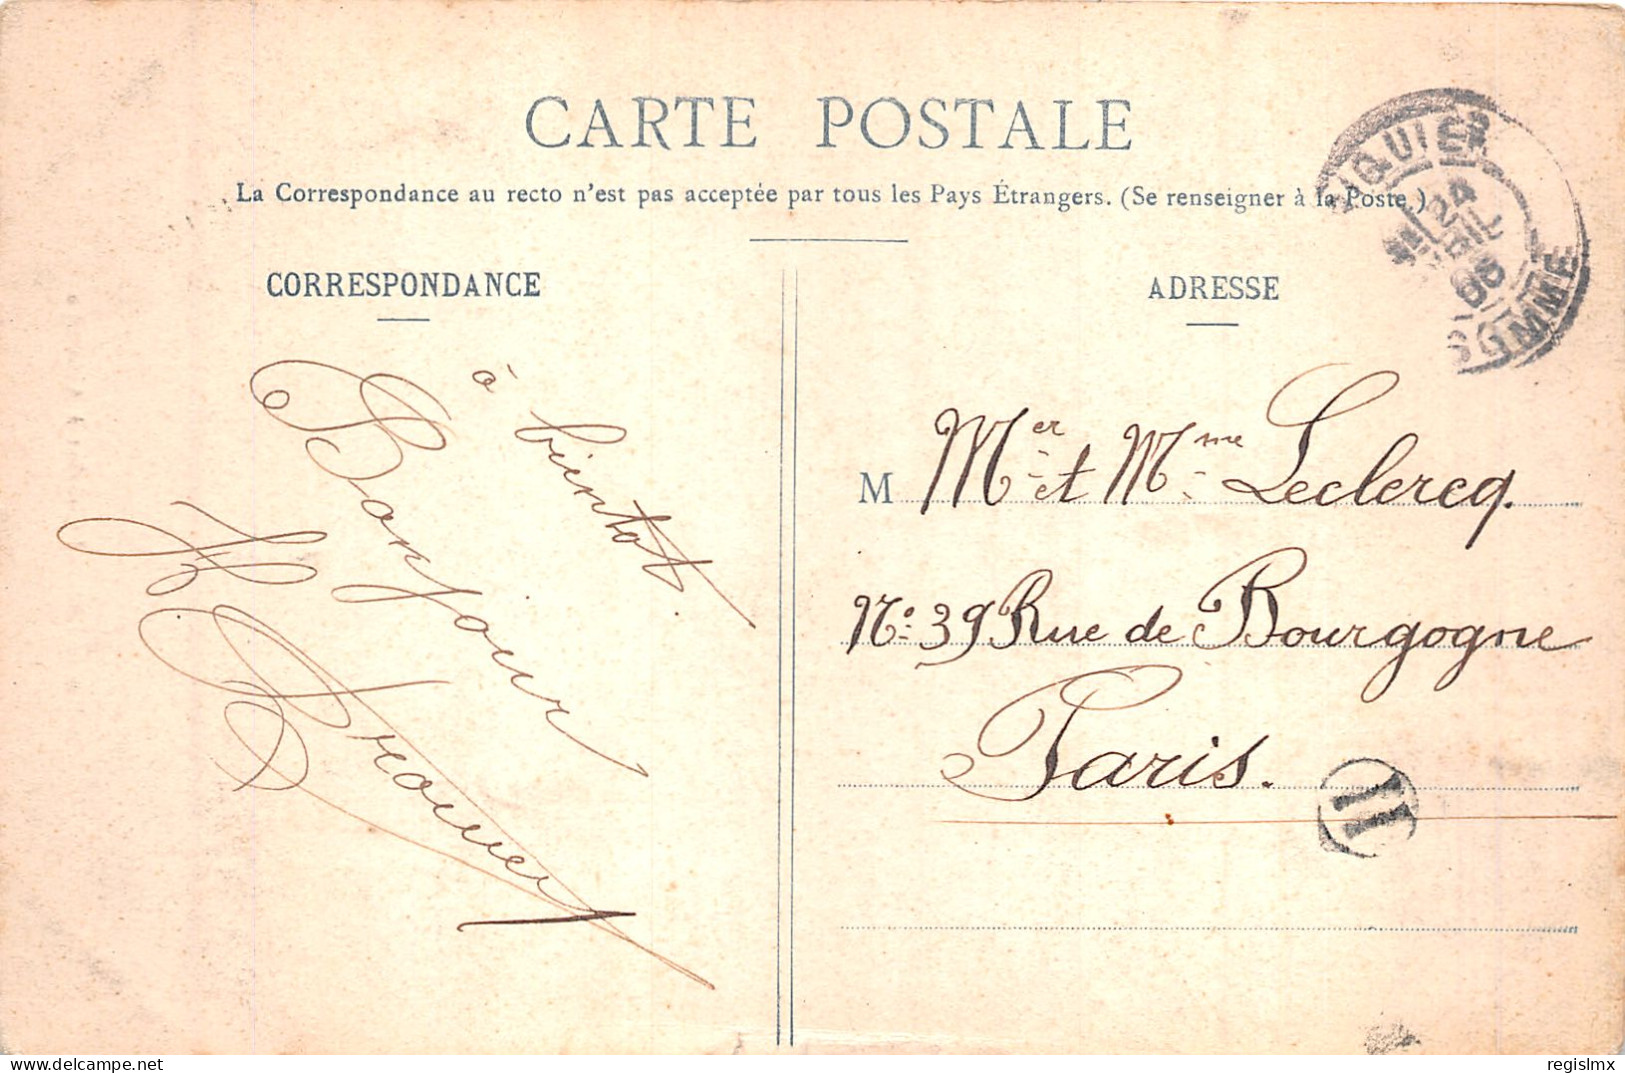 CARTE POSTALE
La Correspondance au recto n'est pas acceptée par tous les Pays Étrangers. (Se renseigner à la Poste.)
CORRESPONDANCE
à bientot.
Bonjour
ADRESSE
M Mer et Mme Leclercq.
No. 39 Rue de Bourgogne
Paris.
24
SOMME
H
delcampe.net
regislmx